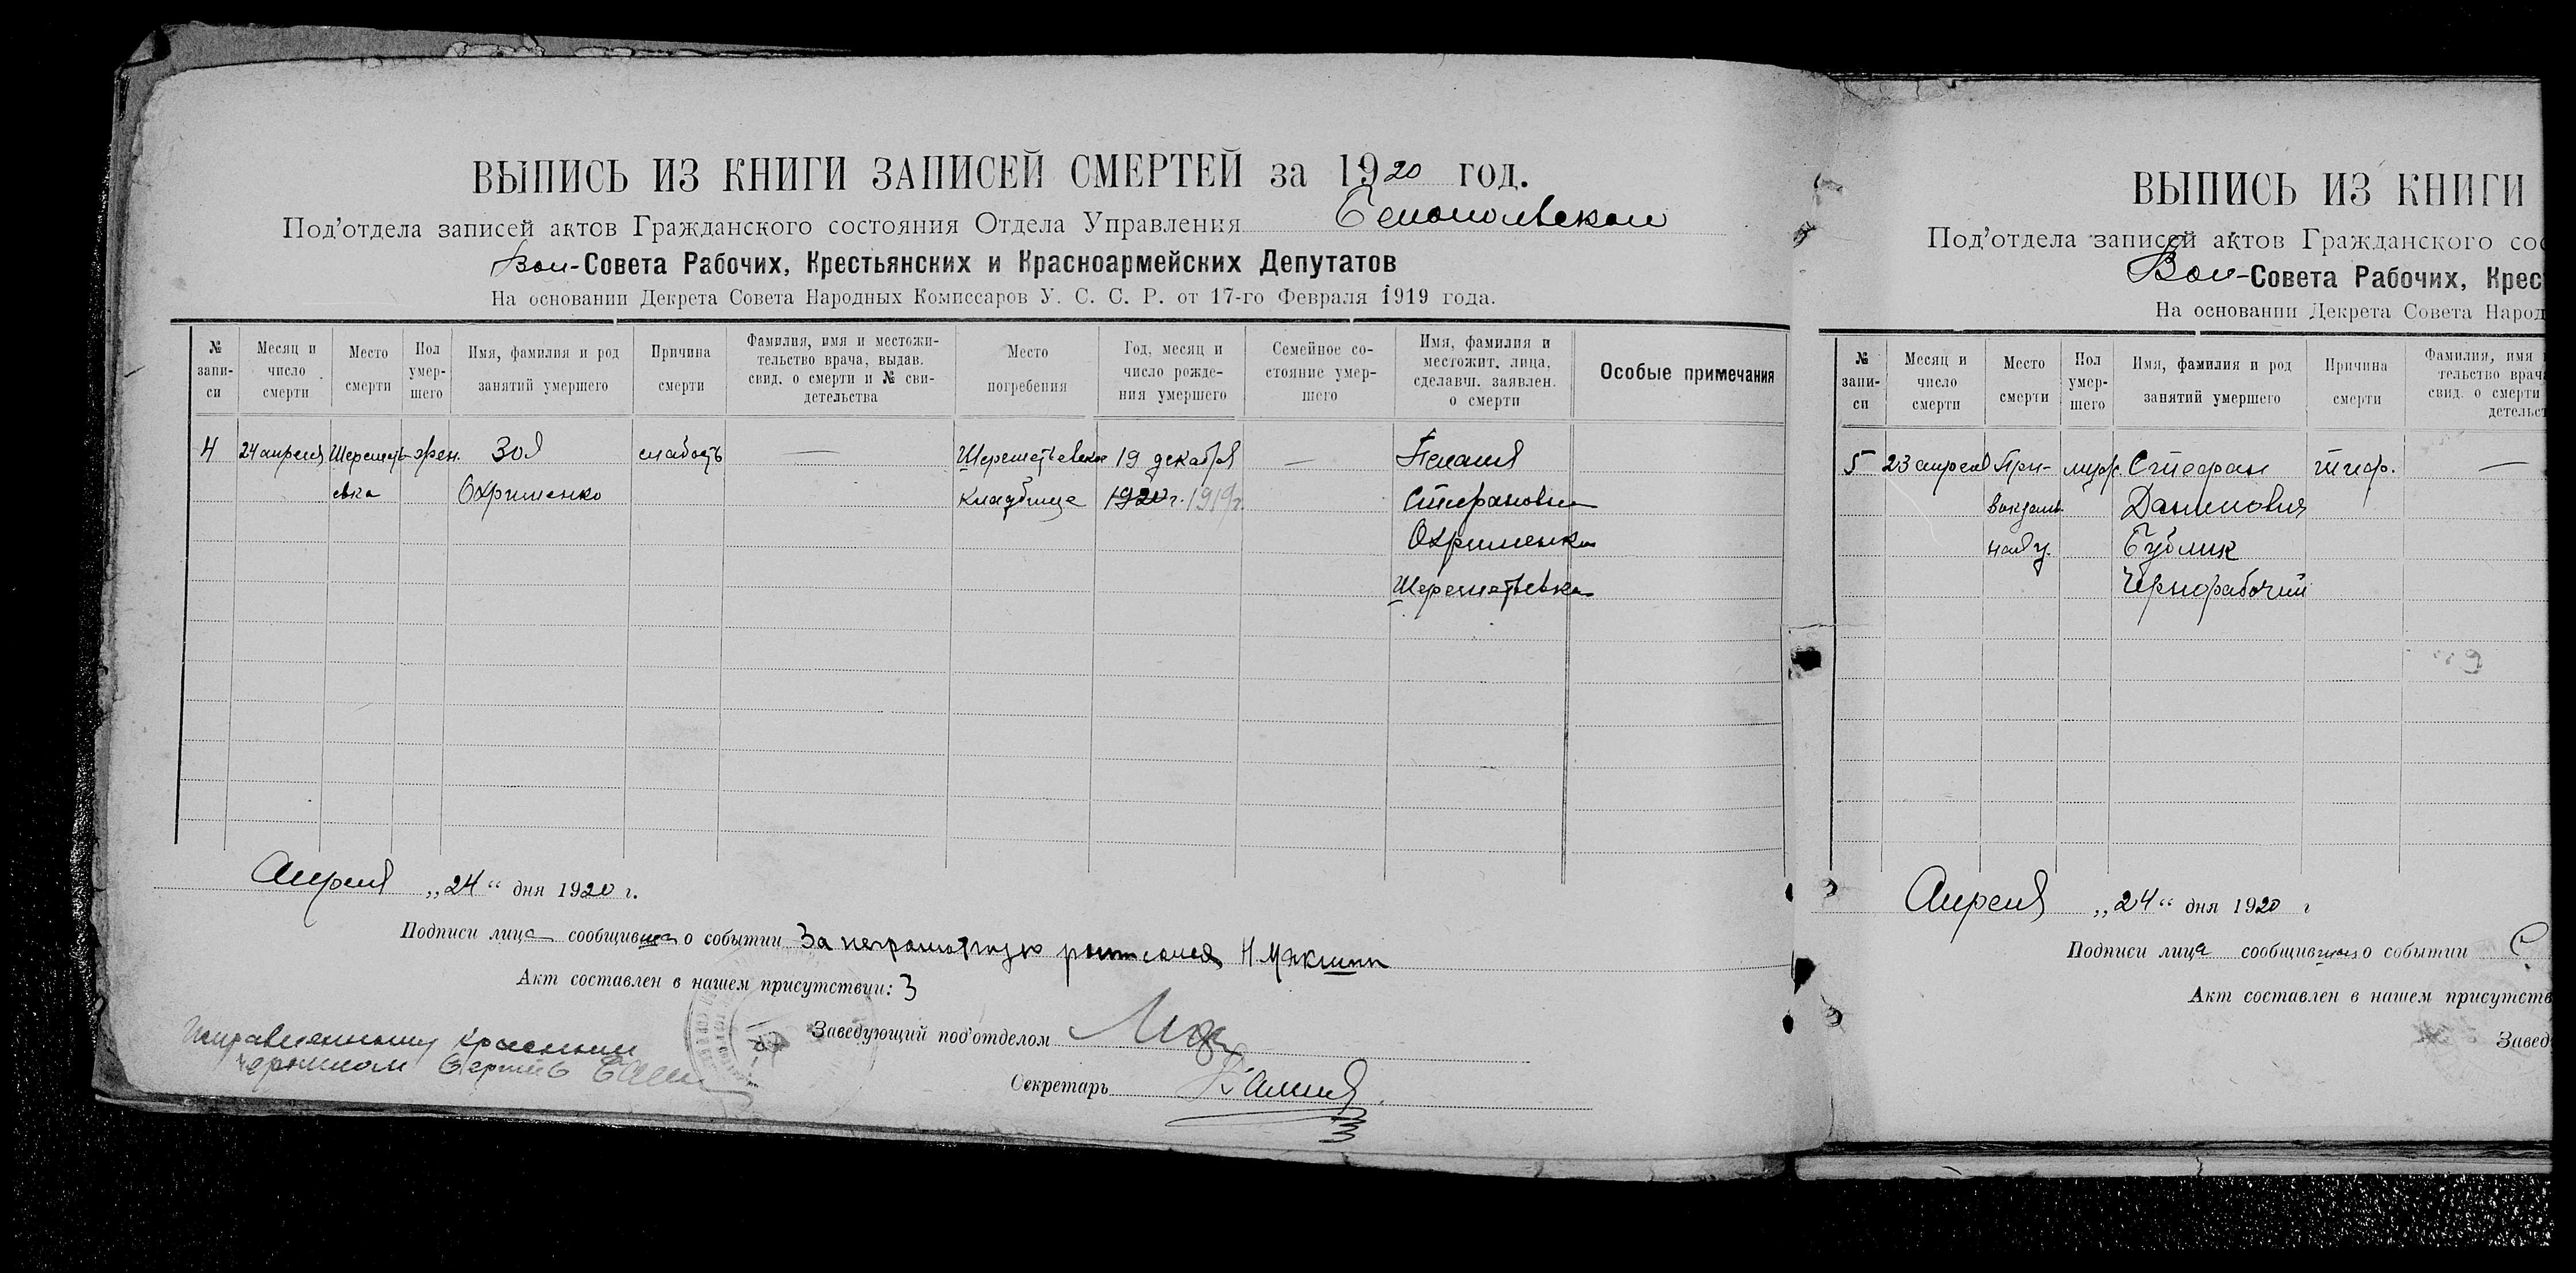 ВЫПИСЬ ИЗ КНИГИ ЗАПИСЕЙ СМЕРТЕЙ за 1920 год.
Под'отдела записей актов Гражданского состояния Отдела Управления
Вол-Совета Рабочих, Крестьянских и Красноармейских Депутатов
На основании Декрета Совета Народных Комиссаров У. С. С. Р. от 17-го Февраля 1919 года.
№ запи-си
Месяц и число смерти
Место смерти
Пол умер-шего
Имя, фамилия и род занятий умершего
Причина смерти
Фамилия, имя и местожи-тельство врача, выдав. свид. о смерти и № сви-детельства
Место погребения
Год, месяц и число рожде-ния умершего
Семейное со-стояние умер-шего
Имя, фамилия и местожит. лица, сделавш. заявлен. о смерти
Особые примечания
4 24 апреля Шереметь- жен. Зоя слабость — Шереметьевское 19 декабря — Пелагия
евка Охрименко кладбище 1920 г. 1919 г. Стефановна
Охрименко
Шереметьевка
Апреля „24“ дня 1920 г.
Подписи лица сообщивша о событии За неграмотную
Акт составлен в нашем присутствии: З
Заведующий под'отделом
Секретарь
красными
чернилами
ВЫПИСЬ ИЗ КНИГИ
Под'отдела записей актов Гражданского сос
Вол-Совета Рабочих, Крес
На основании Декрета Совета Народ
№ запи-си
Месяц и число смерти
Место смерти
Пол умер-шего
Имя, фамилия и род занятий умершего
Причина смерти
Фамилия, имя
тельство врача
свид. о смерти
детельст
5 23 апреля При- муж. Стефан тиф. —
вокзальн. Данилович
Бублик
Чернорабочий
Апреля „24“ дня 1920 г
Подписи лица сообщивш о событии С
Акт составлен в нашем присутств
Завед